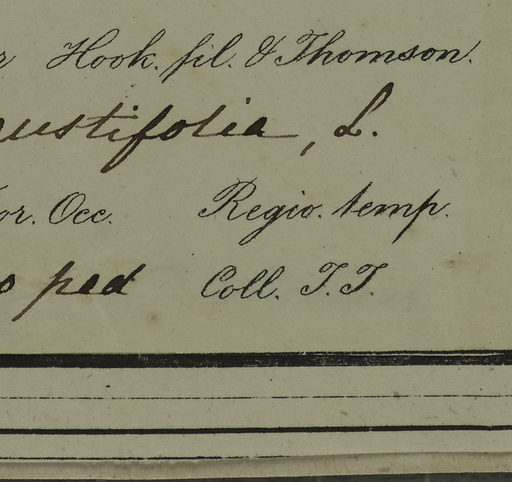 r Hook. fil. & Thomson.
gustifolia, L.
or. Occ. Regio. temp.
o ped Coll. T.T.